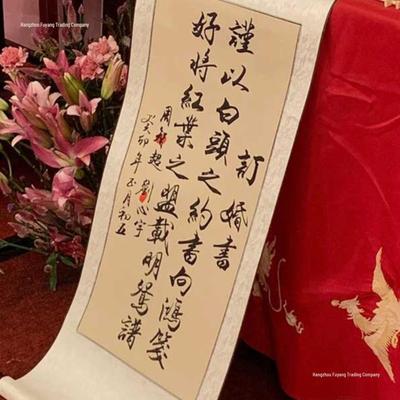 Hangzhou Fuyang Trading Company
訂婚書
謹以白頭之約書向鴻箋
好將紅葉之盟載明鴛譜
周 超 劉心宇
癸卯年正月初五
Hangzhou Fuyang Trading Company